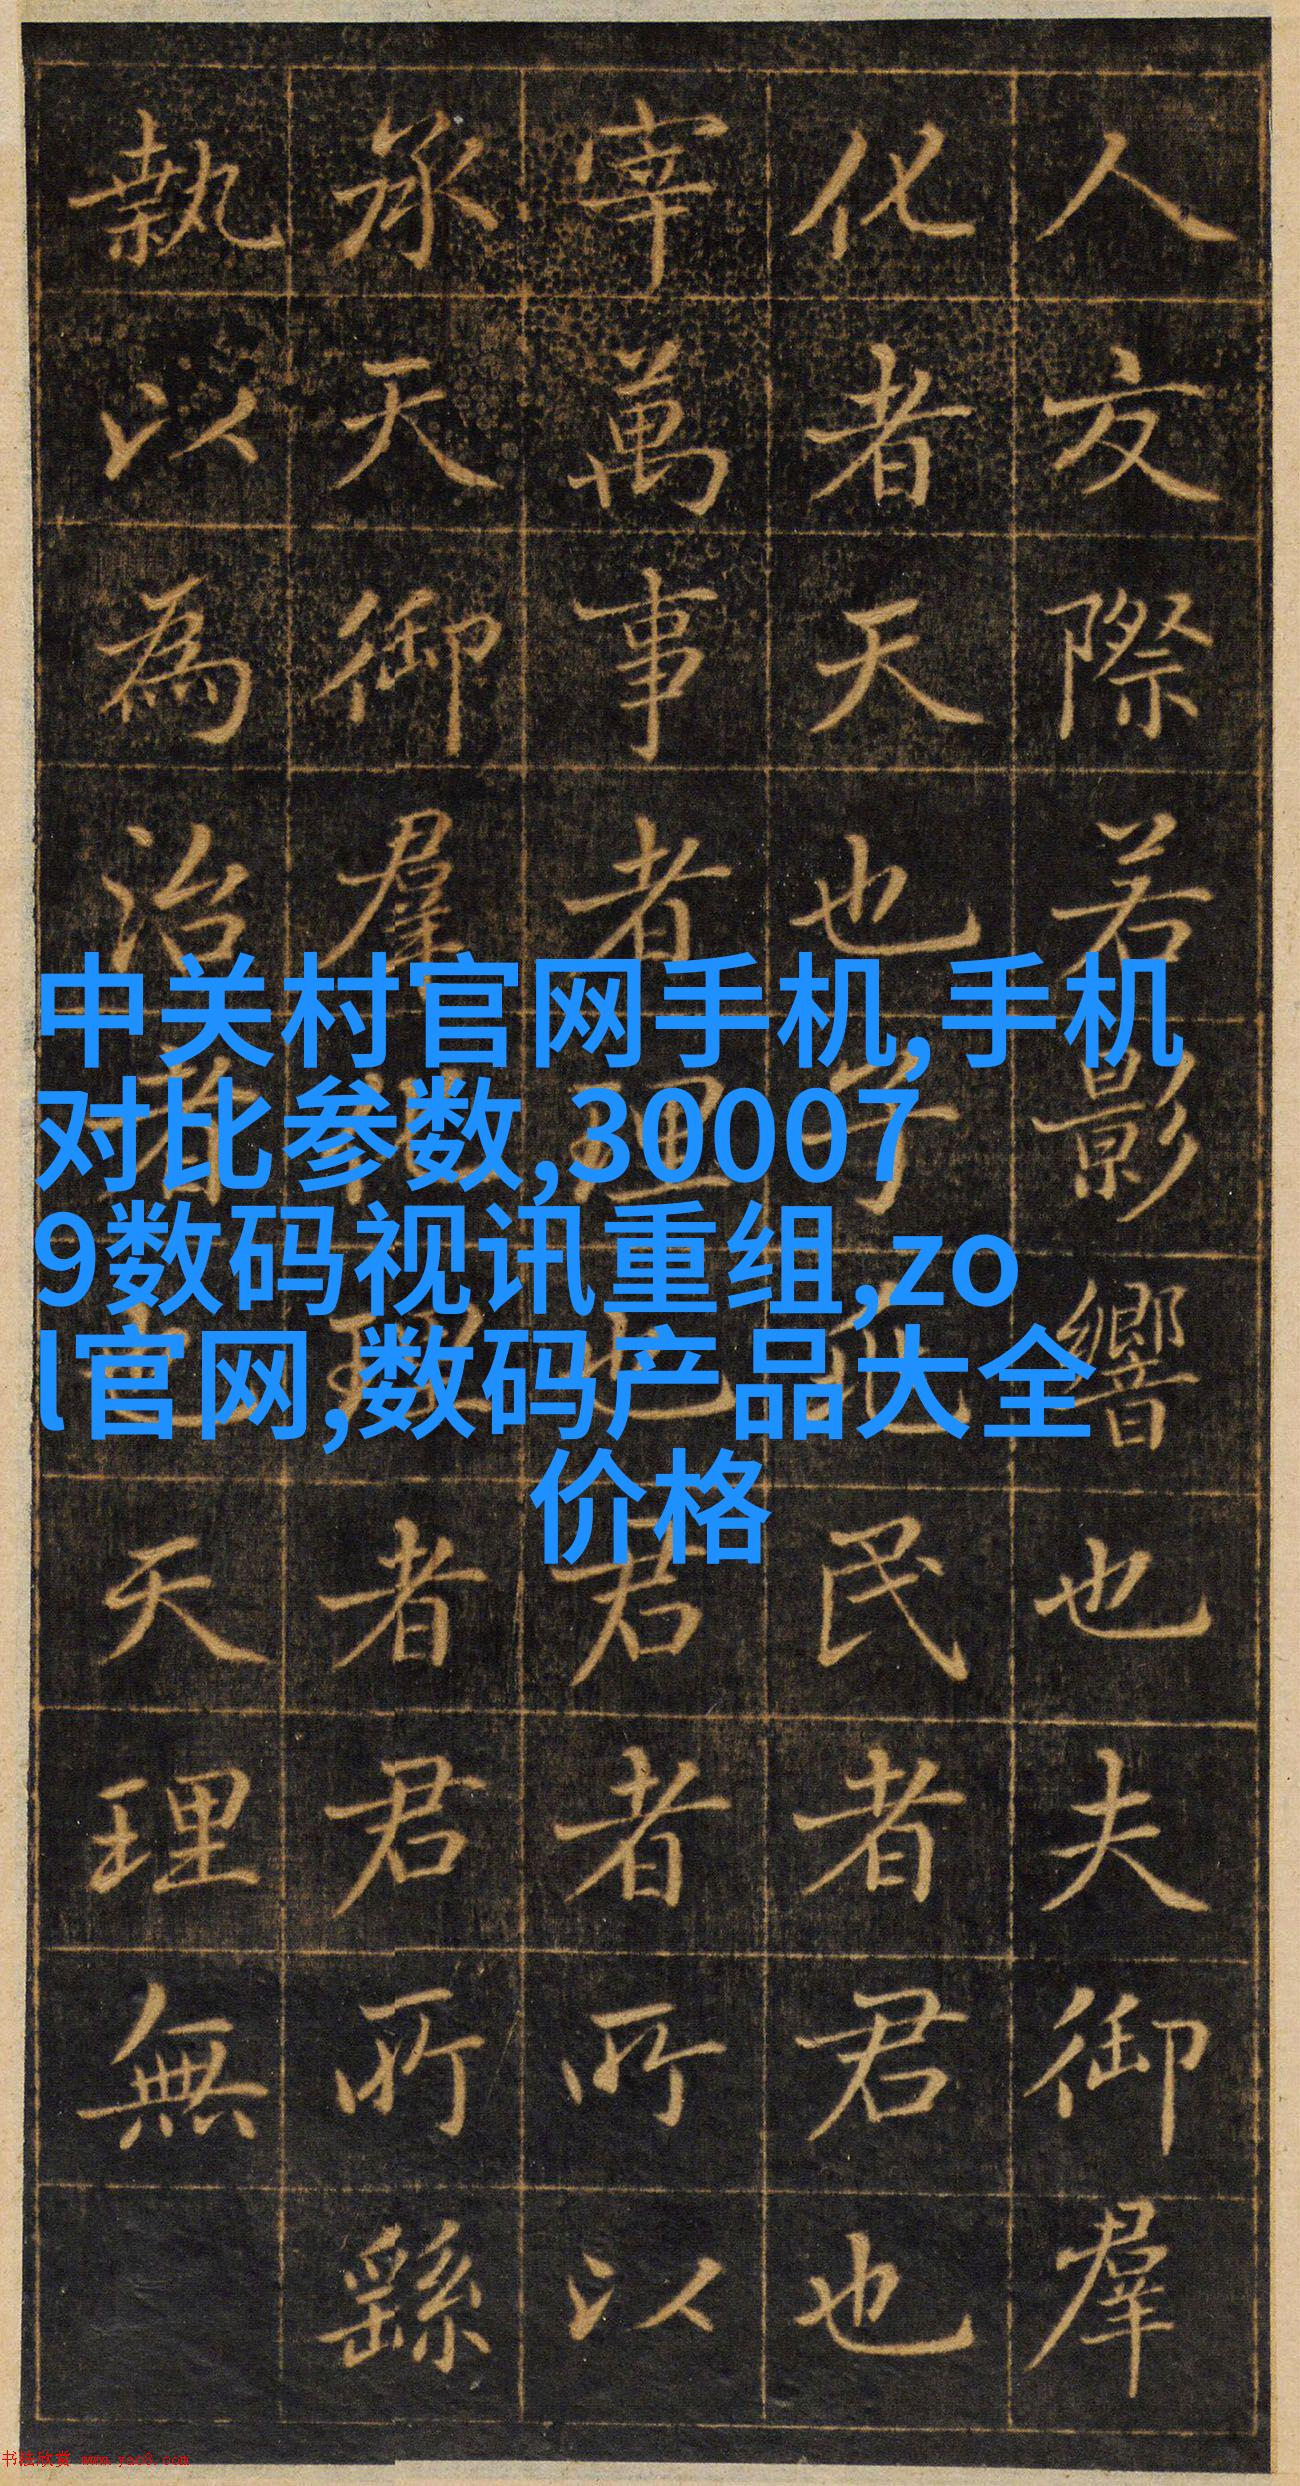 人交際若影響也夫御羣
化者天也民者君也
宰萬事者理也君者所以
承天御羣理者君所繇
執以為治者也天理無
中关村官网手机,手机
对比参数,30007
9数码视讯重组,zo
l官网,数码产品大全
价格
书法欣赏 www.yac8.com